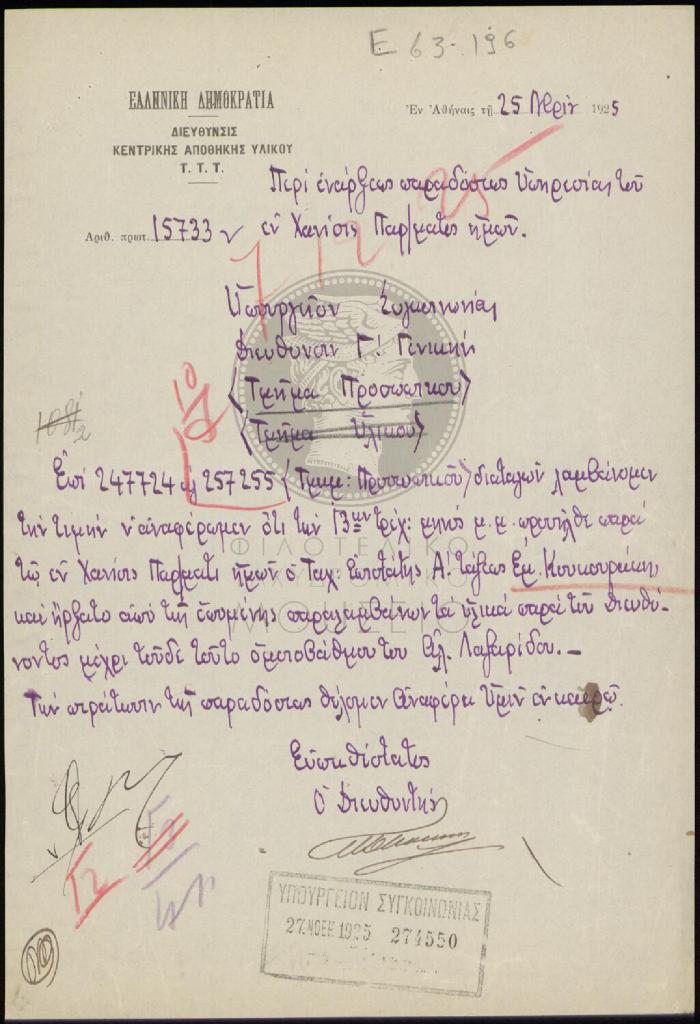 Ε 63-196
ΕΛΛΗΝΙΚΗ ΔΗΜΟΚΡΑΤΙΑ
ΔΙΕΥΘΥΝΣΙΣ
ΚΕΝΤΡΙΚΗΣ ΑΠΟΘΗΚΗΣ ΥΛΙΚΟΥ
Τ. Τ. Τ.
Ἐν Ἀθήναις τῇ 25 Νβρίου 1925
Ἀριθ. πρωτ. 15733
Περὶ ἐνάρξεως παραδόσεως Ὑπηρεσίας τοῦ
ἐν Χανίοις Παρ/ματος ἡμῶν.
7/12 25
Ὑπουργεῖον Συγκοινωνίας
Διεύθυνσιν Γ! Γενικήν
(Τμῆμα Προσωπικοῦ)
(Τμῆμα Ὑλικοῦ)
10
Ἐπὶ 247724 257255 (Τμῆμ: Προσωπικοῦ) διαταγῶν λαμβάνομεν
τὴν τιμὴν ν' ἀναφέρωμεν ὅτι τὴν 13ην τρέχ: μηνὸς μ.μ. προσῆλθε παρὰ
τῷ ἐν Χανίοις Παρ/ματι ἡμῶν ὁ Ταχ. Ἐπιστάτης Α! τάξεως Ἐμ. Κουκουράκης
καὶ ἤρξατο ἀπὸ τῆς ἑπομένης παραλαμβάνων τὰ ὑλικὰ παρὰ τοῦ Διευθύ-
νοντος μέχρι τοῦδε τοῦτο ὁμοιοβάθμου του Ἀλ. Λαζαρίδου.—
Τὴν περάτωσιν τῆς παραδόσεως θέλομεν ἀναφέρει Ὑμῖν ἐν καιρῷ.
Εὐπειθέστατος
Ὁ Διευθυντὴς
12
ΥΠΟΥΡΓΕΙΟΝ ΣΥΓΚΟΙΝΩΝΙΑΣ
27.ΝΟΕΜ 1925 274550
ΦΙΛΟΤΕΛΙΚΟ
ΜΟΥΣΕΙΟ